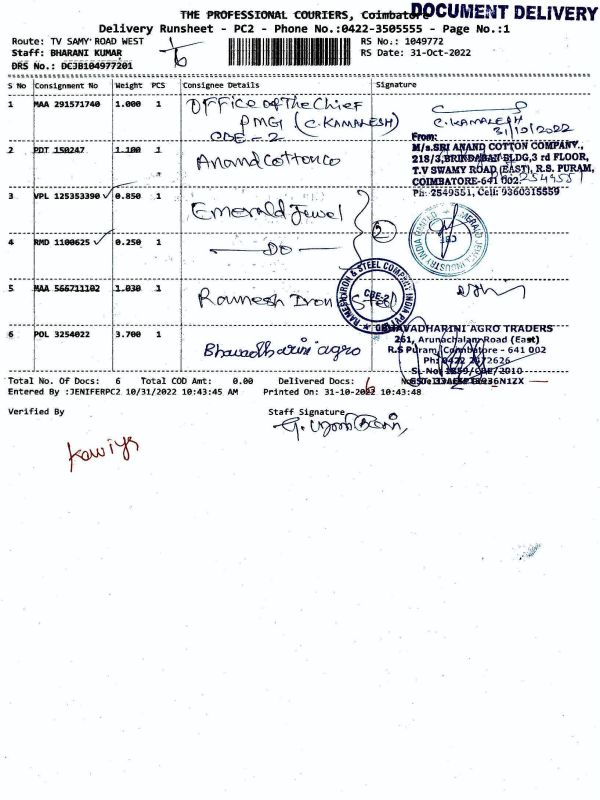 THE PROFESSIONAL COURIERS, Coimbatore
DOCUMENT DELIVERY
Delivery Runsheet - PC2 - Phone No.:0422-3505555 - Page No.:1
Route: TV SAMY ROAD WEST
RS No.: 1049772
Staff: BHARANI KUMAR
6
RS Date: 31-Oct-2022
DRS No.: DCJB104977201
S No Consignment No Weight PCS Consignee Details Signature
1 MAA 291571740 1.000 1 Office of The Chief
PMG (C.KAMALESH)
CBE-2
C.KAMALESH
31/10/2022
2 PDT 150247 1.100 1 Anand Cotton co
From:
M/s.SRI ANAND COTTON COMPANY.,
218/3, BRINDABAN BLDG, 3 rd FLOOR,
T.V SWAMY ROAD (EAST), R.S. PURAM,
COIMBATORE-641 002.
Ph: 2549551, Cell: 9360315559
3 VPL 125353390 0.850 1 Emerald Jewel
2
EMERALD JEWEL INDUSTRY INDIA
4 RMD 1100625 0.250 1 DO
5 MAA 566711102 1.030 1 Ramesh Iron Steel
RAMESH IRON & STEEL COMPANY INDIA PVT
CBE-2
6 POL 3254022 3.700 1 Bhavadharini agro
BHAVADHARINI AGRO TRADERS
261, Arunachalam Road (East)
R.S Puram, Coimbatore - 641 002
Total No. Of Docs: 6 Total COD Amt: 0.00 Delivered Docs: 6
Entered By :JENIFERPC2 10/31/2022 10:43:45 AM Printed On: 31-10-2022 10:43:48
Verified By
Staff Signature
Kaviya